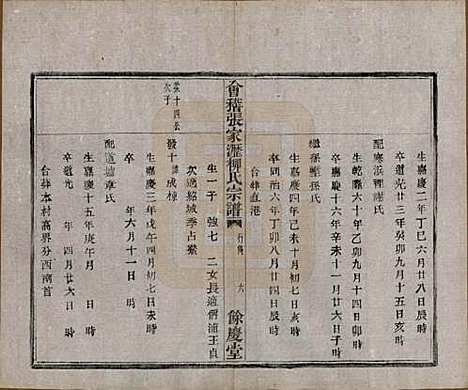 生嘉慶二年丁巳六月廿八日辰時
卒道光廿三年癸卯九月十五日亥時
配寒溪裡諸氏
生乾隆 年 九月十四日亥時
卒嘉慶十六年辛未十一月廿六日子時
繼孫郷孫氏
生嘉慶四年己未十月初六日辰時
卒同治六年丁卯八月廿四日辰時
合葬直港
會稽張家瀝柳氏宗譜
行傳
六
餘慶堂
生一子 強七 二女長適偁浦王貞
次適紹城季占鰲
發十 諱成棟
榮十四長
次子
生嘉慶三年戊午四月初七日子時
卒 年六月十一日 時
配道墟章氏
生嘉慶十五年庚午 月 日 時
卒道光 年 四月廿六日 時
合葬本村高界分西南首